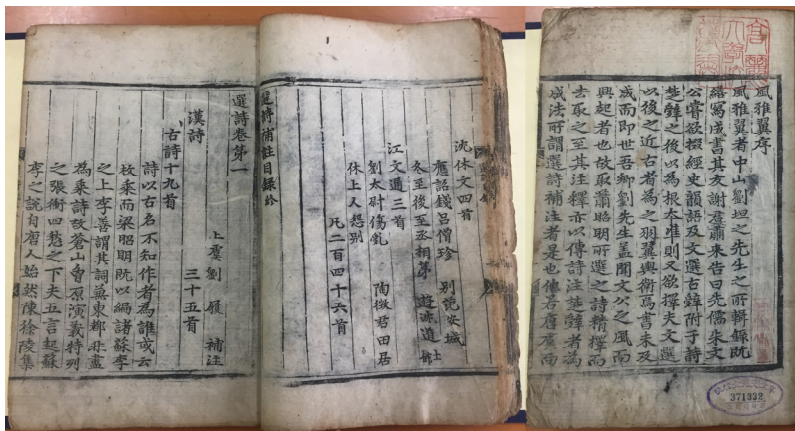 風雅翼序
風雅翼者中山劉坦之先生之所輯錄既
繕寫成書其友謝君肅來告曰先儒朱文
公嘗欲掇經史韻語及文選古辭附于詩
楚辭之後以為根本準則又欲擇夫文選
以後之近古者為之羽翼輿衛焉書未及
成而即世吾鄉劉先生盖聞文公之風而
興起者也故取蕭昭明所選之詩精擇而
去取之至其注釋亦以傳詩注楚辭者為
成法所謂選詩補註者是也若唐虞而
371332
沈休文四首
應詔餞呂僧珍 別范安城
冬至後至丞相第 遊沈道士館
江文通三首
劉太尉傷亂 陶徵君田居
休上人怨别
凡二百四十六首
選詩補註目録終
選詩卷第一
上虞劉 履 補注
漢詩 三十五首
古詩十九首
詩以古名不知作者為誰或云
枚乘而梁昭明既以編諸蘇李
之上李善謂其詞兼東都非盡
為乘詩故蒼山曾原演義特列
之張衡四愁之下夫五言起蘇
李之說自唐人始然陳徐陵集